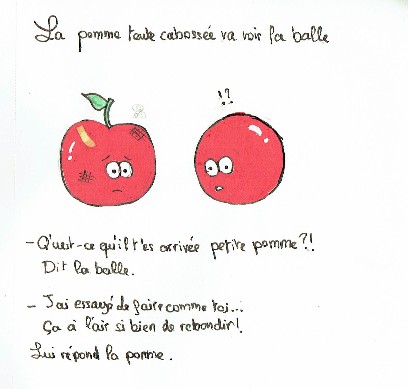 La pomme toute cabossée va voir la balle
!?
- Qu'est-ce qu'il t'es arrivée petite pomme?!
Dit la balle.
- J'ai essayé de faire comme toi...
Ça à l'air si bien de rebondir!
Lui répond la pomme.